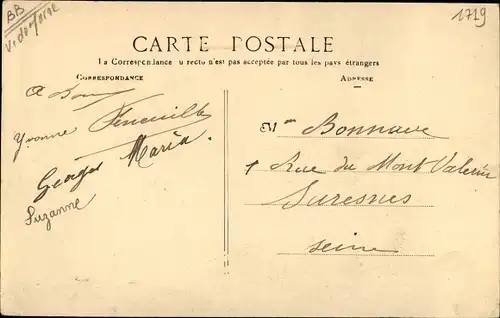 BB
1719
CARTE POSTALE
La Correspondance au recto n'est pas acceptée par tous les pays étrangers
CORRESPONDANCE
ADRESSE
Yvonne
Georges Maria.
Suzanne
Mme Bonnave
1 Rue du Mont Valérien
Suresnes
Seine